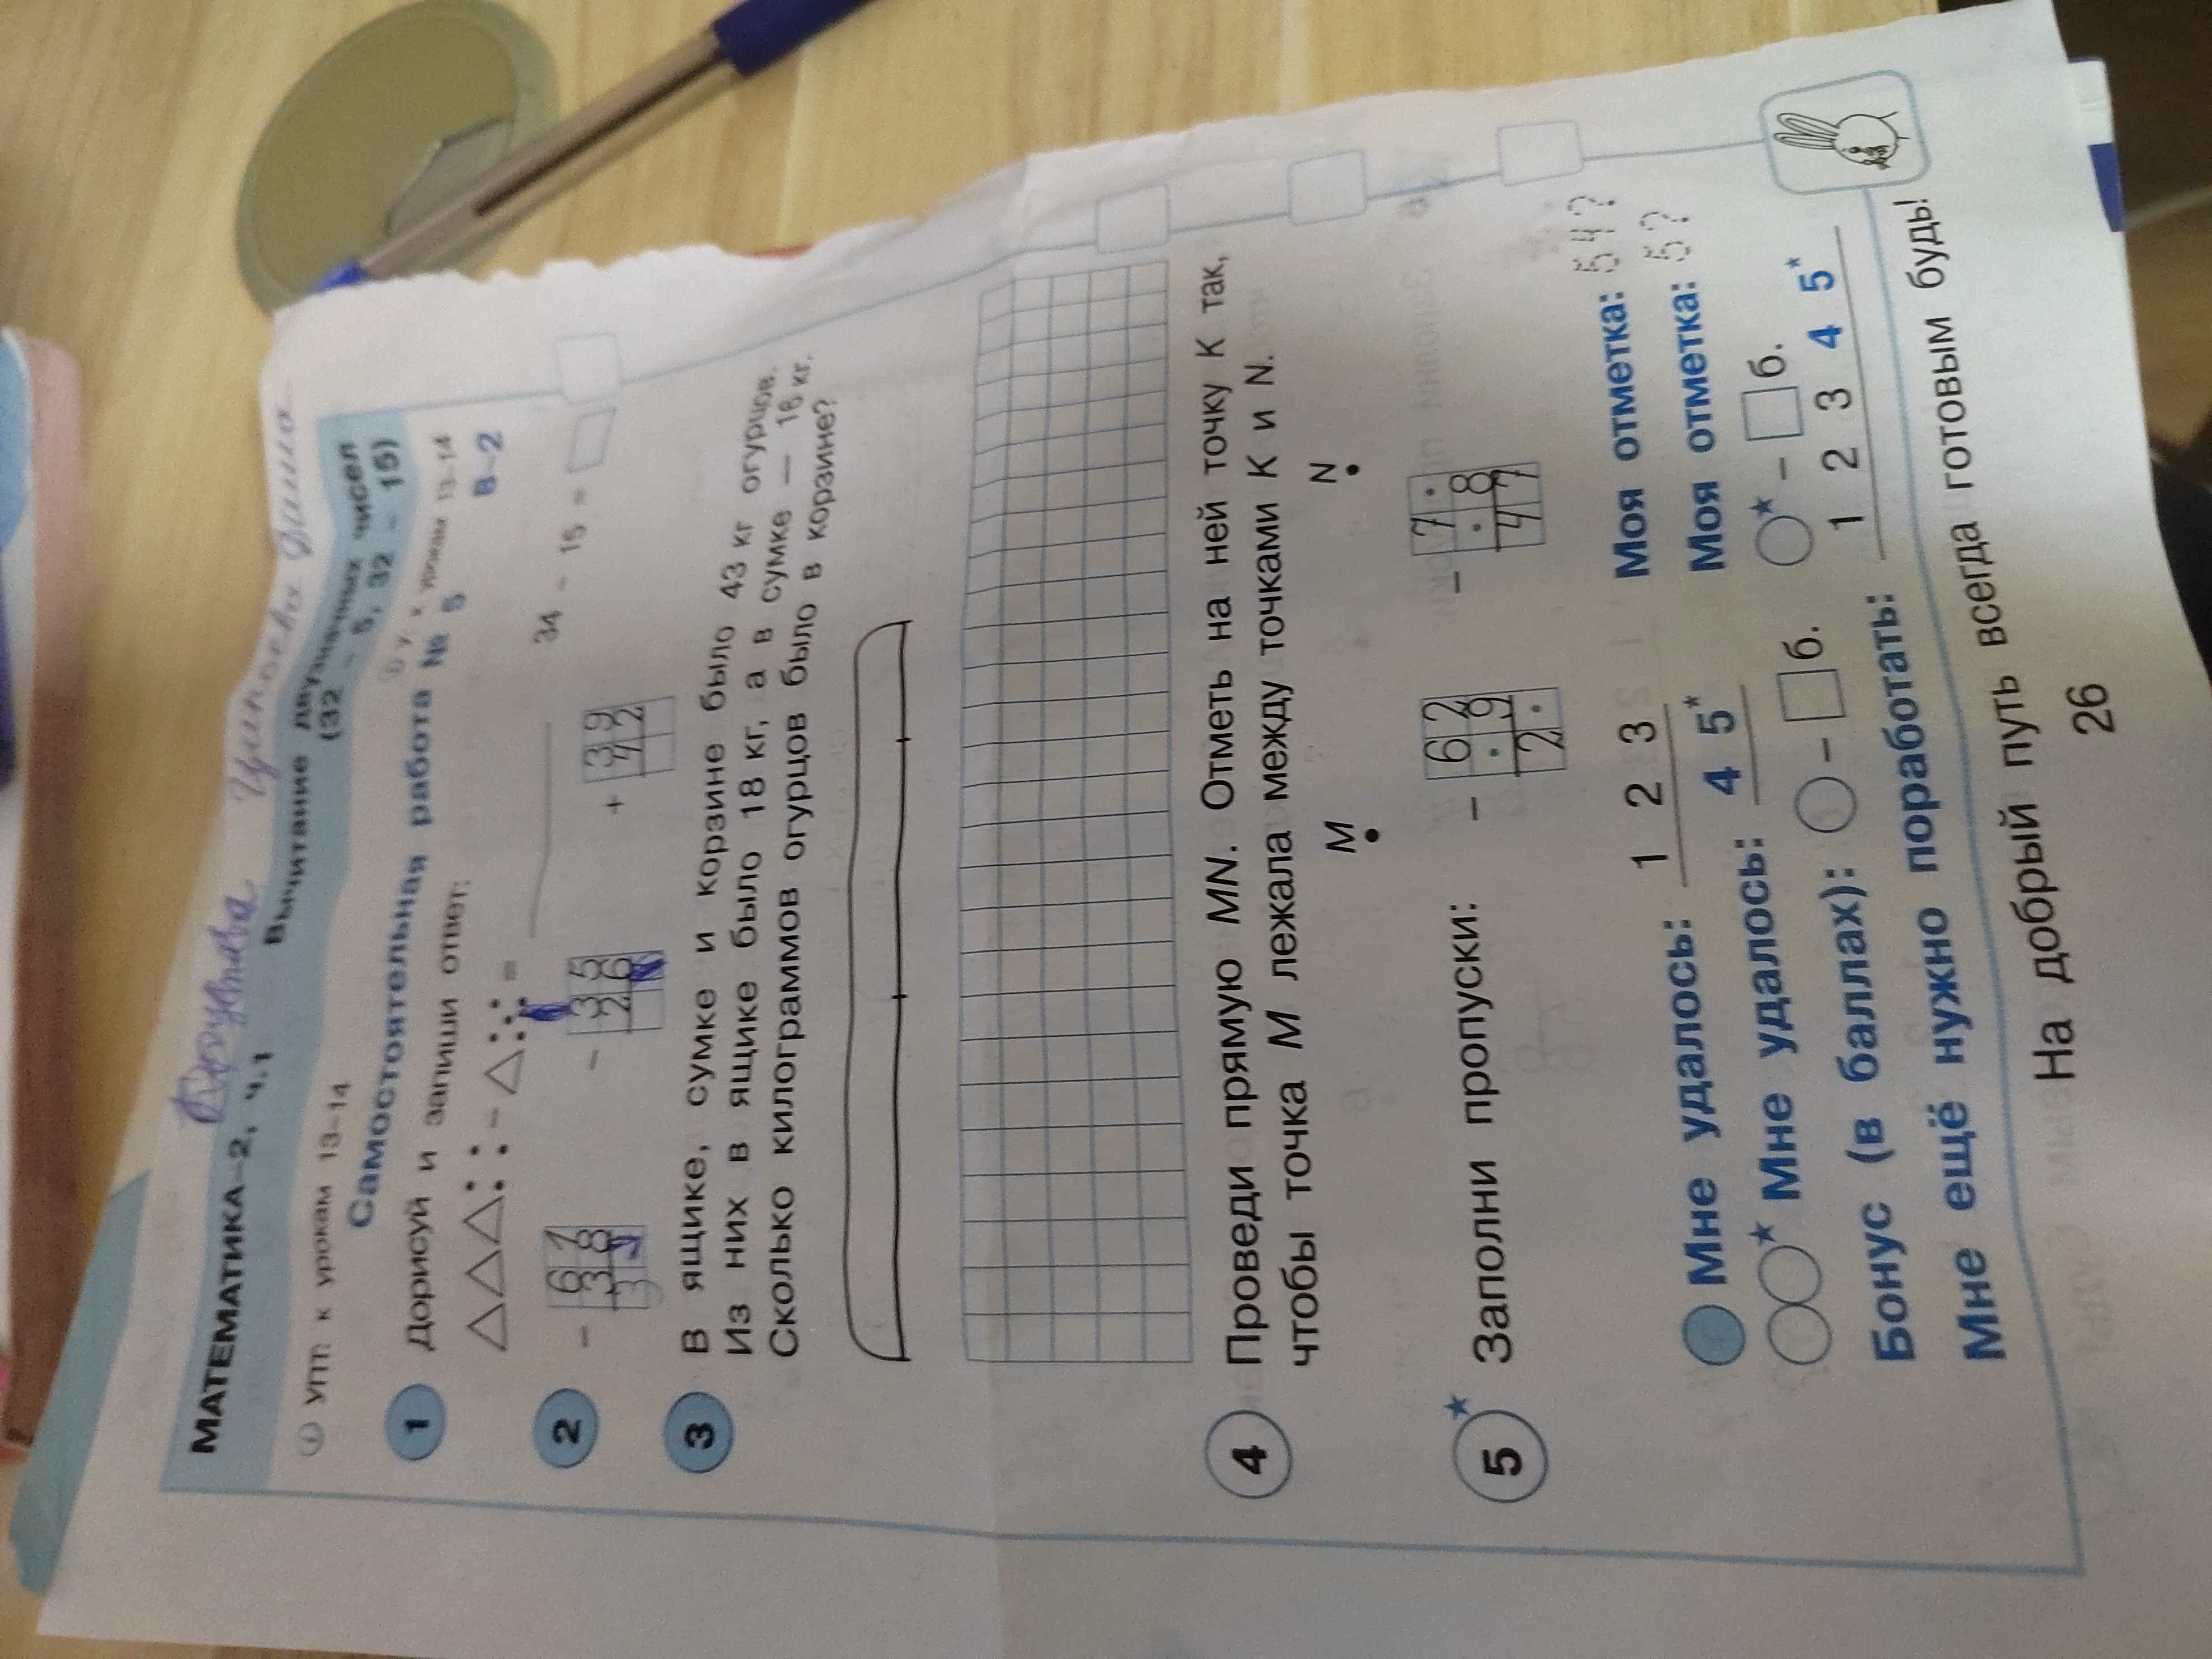 МАТЕМАТИКА–2, ч.1
Вычитание двузначных чисел
(32 – 5, 32 – 15)
УПТ: к урокам 13–14
у. к урокам 13–14
Самостоятельная работа № 5
В–2
1 Дорисуй и запиши ответ:
– = 34 – 15 =
2 – 61 38 3
– 35 26
+ 39 42
3 В ящике, сумке и корзине было 43 кг огурцов.
Из них в ящике было 18 кг, а в сумке — 16 кг.
Сколько килограммов огурцов было в корзине?
4 Проведи прямую MN. Отметь на ней точку K так,
чтобы точка M лежала между точками K и N.
M N
5* Заполни пропуски:
– 62 •9 2•
– 7• •8 47
Мне удалось: 1 2 3 Моя отметка: 54?
* Мне удалось: 4 5* Моя отметка: 5?
Бонус (в баллах): – б. * – б.
Мне ещё нужно поработать: 1 2 3 4 5*
На добрый путь всегда готовым будь!
26